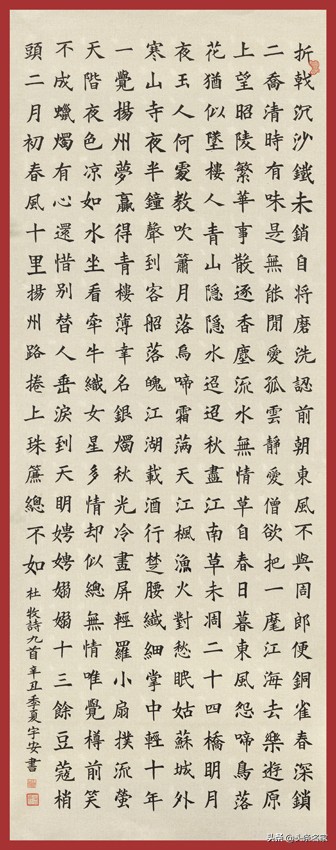 折戟沉沙鐵未銷自將磨洗認前朝東風不與周郎便銅雀春深鎖
二喬清時有味是無能閒愛孤雲靜愛僧欲把一麾江海去樂遊原
上望昭陵繁華事散逐香塵流水無情草自春日暮東風怨啼鳥落
花猶似墜樓人青山隱隱水迢迢秋盡江南草未凋二十四橋明月
夜玉人何處教吹簫月落烏啼霜滿天江楓漁火對愁眠姑蘇城外
寒山寺夜半鐘聲到客船落魄江湖載酒行楚腰纖細掌中輕十年
一覺揚州夢贏得青樓薄幸名銀燭秋光冷畫屏輕羅小扇撲流螢
天階夜色凉如水坐看牽牛織女星多情却似總無情唯覺樽前笑
不成蠟燭有心還惜別替人垂淚到天明娉娉嫋嫋十三餘豆蔻梢
頭二月初春風十里揚州路捲上珠簾總不如
杜牧詩九首辛丑季夏宇安書